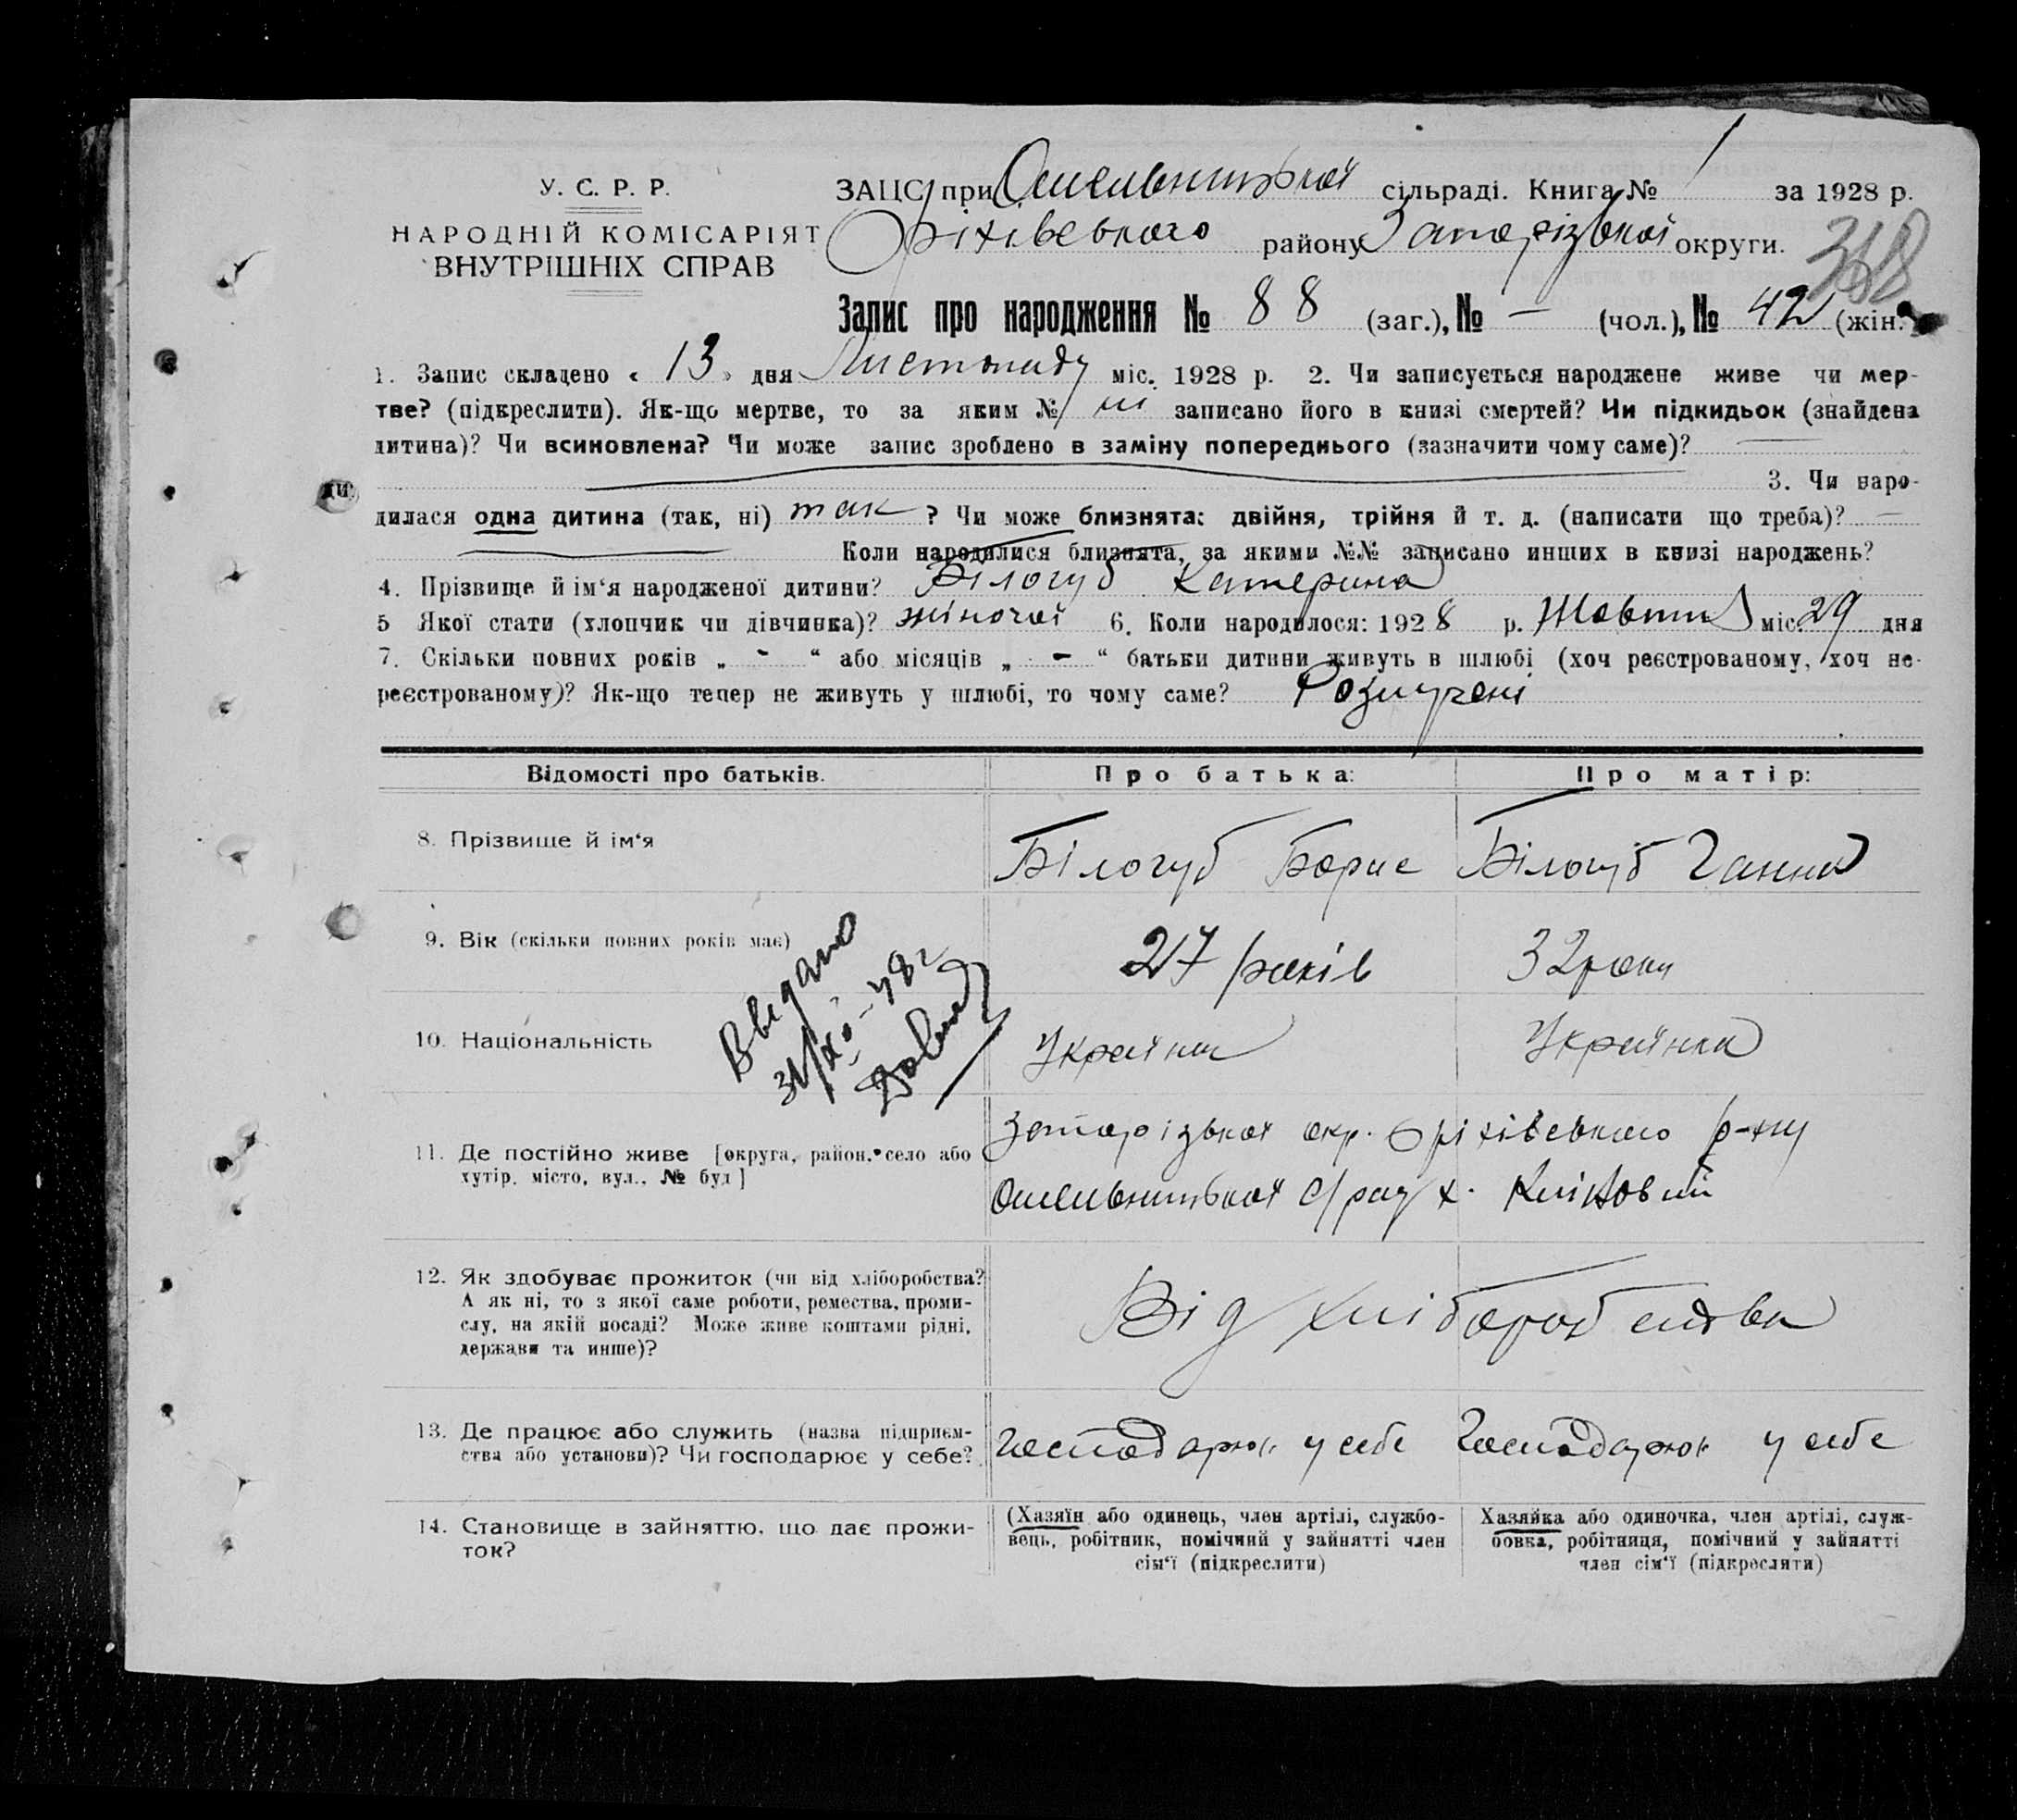 У. С. Р. Р.
НАРОДНІЙ КОМІСАРІЯТ
ВНУТРІШНІХ СПРАВ
ЗАЦС при Омельницької сільраді. Книга № 1 за 1928 р.
Оріхівського району Запорізької округи.
318
Запис про народження № 88 (заг.), № – (чол.), № 42 (жін.)
1. Запис складено « 13 » дня Листопаду міс. 1928 р. 2. Чи записується народжене живе чи мер-
тве? (підкреслити). Як-що мертве, то за яким № ні записано його в книзі смертей? Чи підкидьок (знайдена
дитина)? Чи всиновлена? Чи може запис зроблено в заміну попереднього (зазначити чому саме)? —
3. Чи наро-
дилася одна дитина (так, ні) так ? Чи може близнята: двійня, трійня й т. д. (написати що треба)? —
Коли народилися близнята, за якими №№ записано инших в книзі народжень?
4. Прізвище й ім‘я народженої дитини? Білогуб Катерина
5 Якої стати (хлопчик чи дівчинка)? жіночої 6. Коли народилося: 1928 р. Жовтня міс. 29 дня
7. Скільки повних років „ - “ або місяців „ - “ батьки дитини живуть в шлюбі (хоч реєстрованому, хоч не-
реєстрованому)? Як-що тепер не живуть у шлюбі, то чому саме? Розлучені
Відомості про батьків. Про батька: Про матір:
8. Прізвище й ім‘я Білогуб Борис Білогуб Ганна
9. Вік (скільки повних років має) 27 років 32 роки
10. Національність Українець Українка
Введано
31/XII-48г
11. Де постійно живе [округа, район, село або
хутір, місто, вул., № буд]
Запорізької окр. Оріхівського р-ну
Омельницької с/рад х.
12. Як здобуває прожиток (чи від хліборобства?
А як ні, то з якої саме роботи, ремества, проми-
слу, на якій посаді? Може живе коштами рідні,
держави та инше)?
Від хліборобства
13. Де працює або служить (назва підприєм-
ства або установи)? Чи господарює у себе?
Господарює у себе Господарює у себе
14. Становище в зайняттю, що дає прожи-
ток?
(Хазяїн або одинець, член артілі, службо-
вець, робітник, помічний у зайнятті член
сім‘ї (підкреслити)
Хазяйка або одиночка, член артілі, служ-
бовка, робітниця, помічний у зайнятті
член сім‘ї (підкреслити)